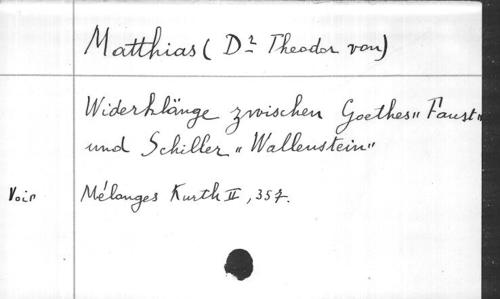 Matthias ( Dr Theodor von)
Widerklänge zwischen Goethes „Faust"
und Schiller „Wallenstein"
Voir Mélanges Kurth II, 357.